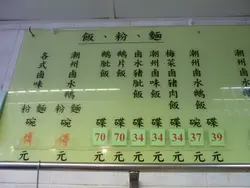 飯、粉、麵
潮州鹵水鵝飯 碟 37 元
梅菜鹵豬肉飯 碟 34 元
潮州鹵味飯 碟 34 元
鹵水豬肶飯 碟 34 元
鵝片飯 碟 70 元
鵝肶飯 碟 70 元
潮州鹵水鵝 粉麵 碗 元
各式鹵味 粉麵 碗 元
碟 39 元